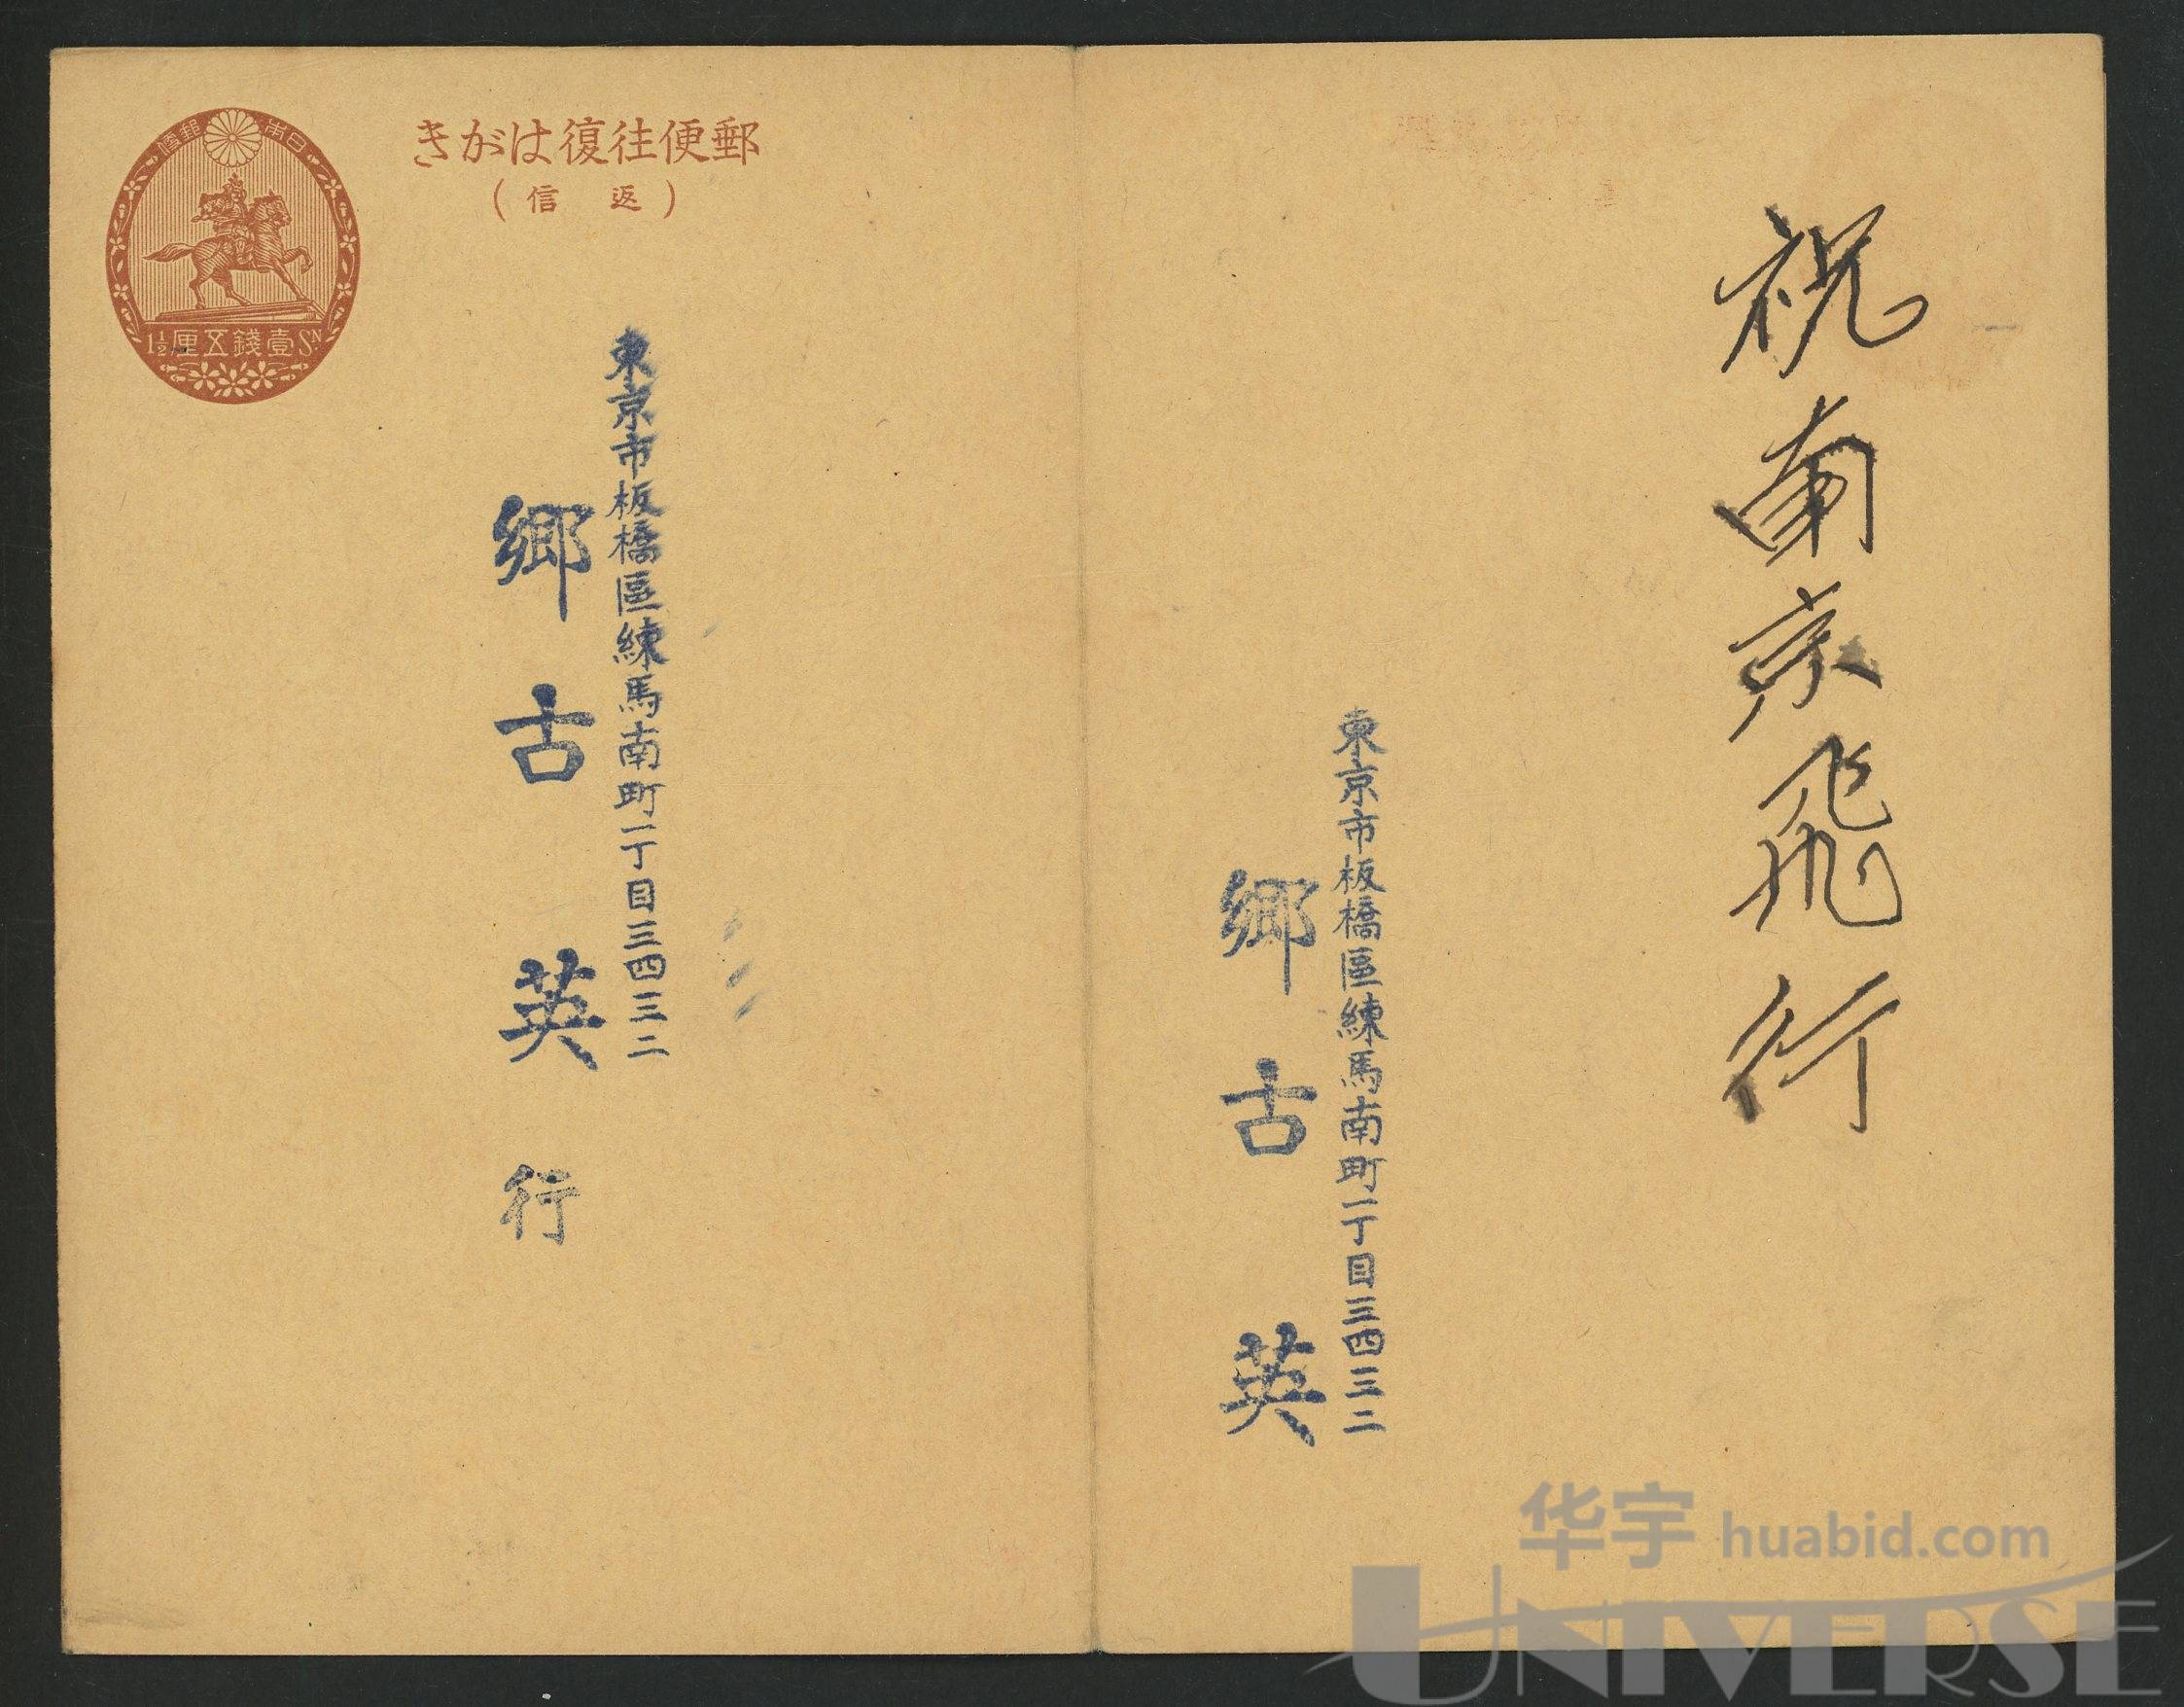 祝南京飛行
東京市板橋區練馬南町一丁目三四三二
郷古英
郵便往復はがき
(返信)
日本郵便
壹錢五厘
1½ SN
東京市板橋區練馬南町一丁目三四三二
郷古英行
华宇 huabid.com
UNIVERSE